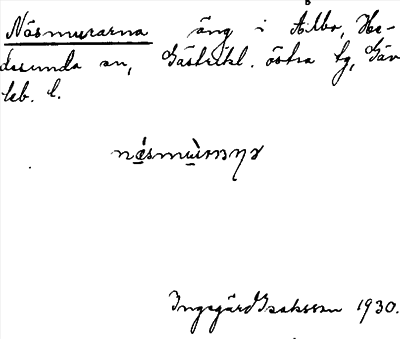 Näsmurarna äng i Ålbo, He-
desunda sn, Gästrikl. östra tg, Gäv
leb. l.
Ingegärd Isaksson 1930.